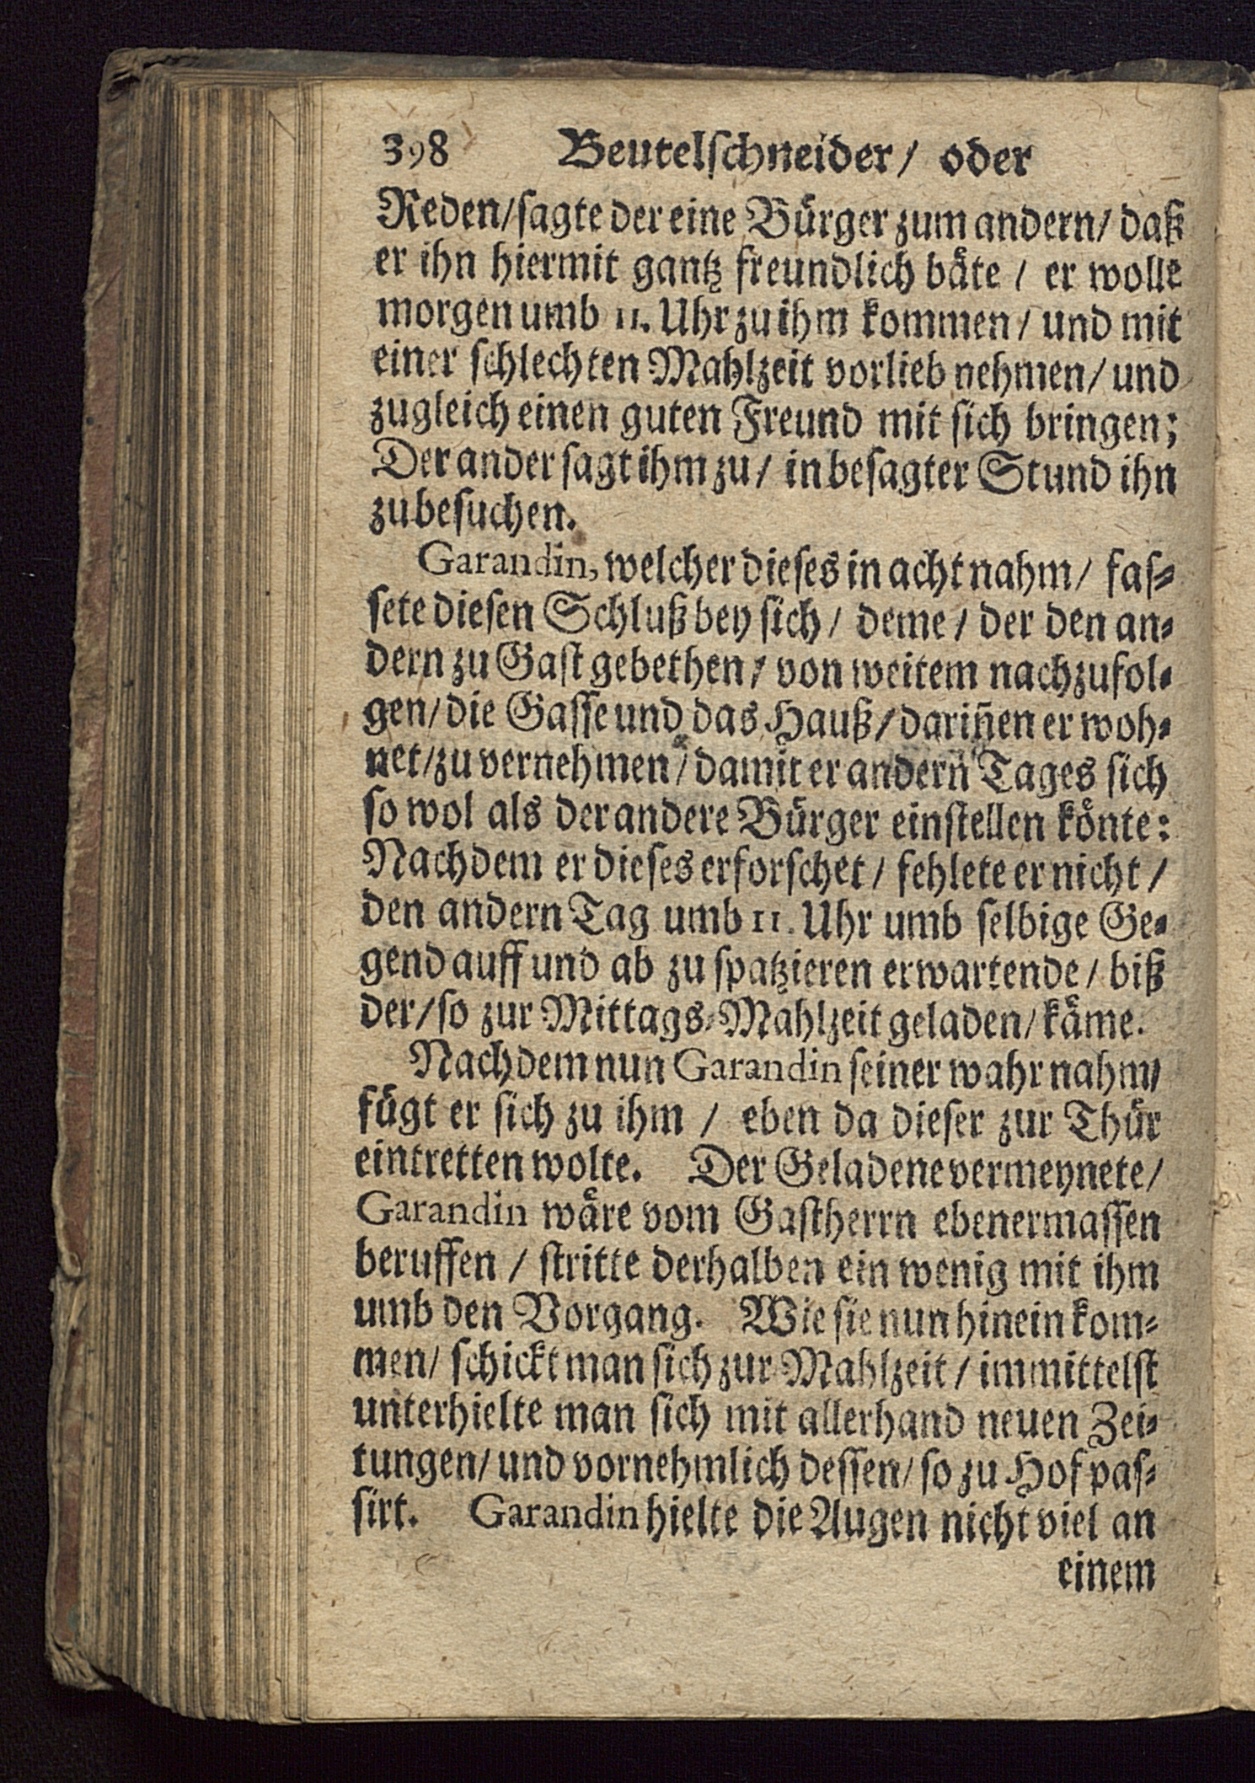 398 Beutelschneider/ oder
Reden/sagte der eine Bürger zum andern/ daß
er ihn hiermit gantz freundlich bäte / er wolle
morgen umb 11. Uhr zu ihm kommen / und mit
einer schlechten Mahlzeit vorlieb nehmen / und
zugleich einen guten Freund mit sich bringen;
Der ander sagt ihm zu / in besagter Stund ihn
zu besuchen.
Garandin, welcher dieses in acht nahm / fas-
sete diesen Schluß bey sich / deme / der den an-
dern zu Gast gebethen / von weitem nachzufol-
gen / die Gasse und das Hauß / dariñen er woh-
net / zu vernehmen / damit er andern Tages sich
so wol als der andere Bürger einstellen könte:
Nachdem er dieses erforschet / fehlete er nicht /
den andern Tag umb 11. Uhr umb selbige Ge-
gend auff und ab zu spatzieren erwartende / biß
der / so zur Mittags-Mahlzeit geladen / käme.
Nachdem nun Garandin seiner wahr nahm/
fügt er sich zu ihm / eben da dieser zur Thür
eintretten wolte. Der Geladene vermeynete /
Garandin wäre vom Gastherrn ebenermassen
beruffen / stritte derhalben ein wenig mit ihm
umb den Vorgang. Wie sie nun hinein kom-
men / schickt man sich zur Mahlzeit / immittelst
unterhielte man sich mit allerhand neuen Zei-
tungen / und vornehmlich dessen / so zu Hof pas-
sirt. Garandin hielte die Augen nicht viel an
einem